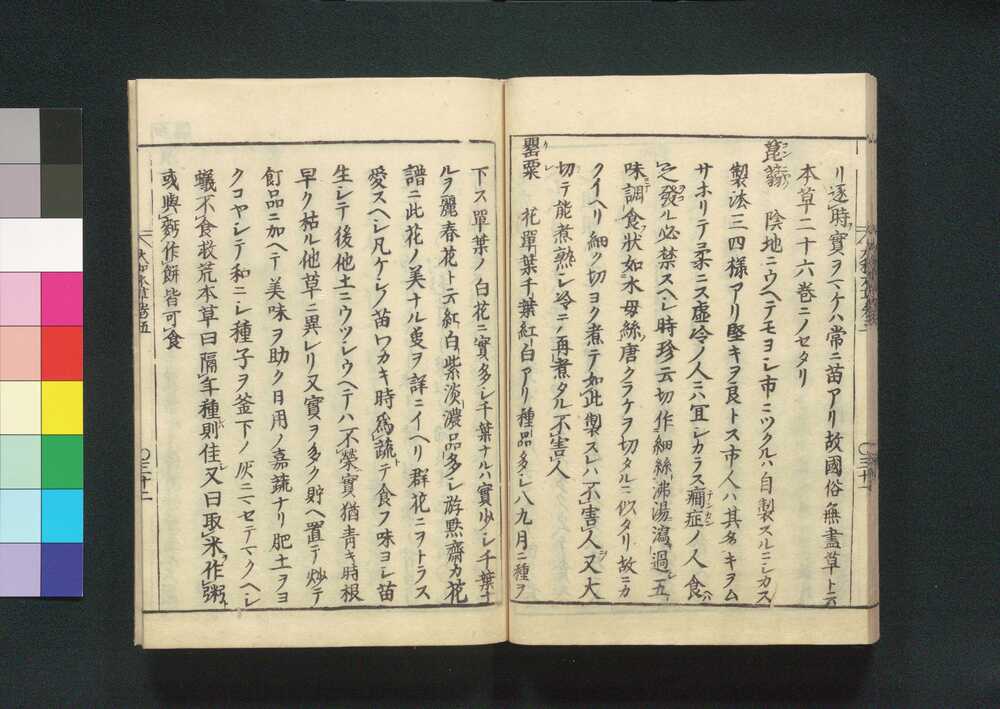 リ逐時實ヲマケハ常ニ苗アリ故國俗無盡草ト云
本草二十六巻ニノセタリ
蒟蒻 陰地ニウヘテモヨシ市ニツクルハ自製スルニシカス
製法三四様アリ堅キヲ良トス市人ハ其多キヲム
サホリテ柔ニス虚冷ノ人ニ宜シカラス癇症ノ人食ヘハ
必發ル必禁スヘシ時珍云切作細絲沸湯瀹過五
味調食状如水母絲唐クラケヲ切タルニ似タリ故ニカ
クイヘリ細ク切ヨク煮テ如此製スレハ不害人又大ニ
切テ能煮熟シ冷シテ再煮タル不害人
罌粟 花單葉千葉紅白アリ種品多シ八九月ニ種ヲ
下ス單葉ノ白花ニ實多シ千葉ナルハ實少シ千葉ナ
ルヲ麗春花ト云紅白紫淡濃品多シ游黙齋カ花
譜ニ此花ノ美ナル叓ヲ詳ニイヘリ群花ニヲトラス
愛スヘシ凡ケシノ苗ワカキ時為蔬テ食フ味ヨシ苗
生シテ後他土ニウツシウヘテハ不榮實猶青キ時根
早ク枯ル他草ニ異レリ又實ヲ多ク貯ヘ置テ炒テ
飣品ニ加ヘテ美味ヲ助ク日用ノ嘉蔬ナリ肥土ヲヨ
クコヤシテ和ニシ種子ヲ釜下ノ灰ニマセテマクヘシ
蟻不食救荒本草曰隔年種則佳又曰取米作粥
或與麪作餅皆可食
〇三十二